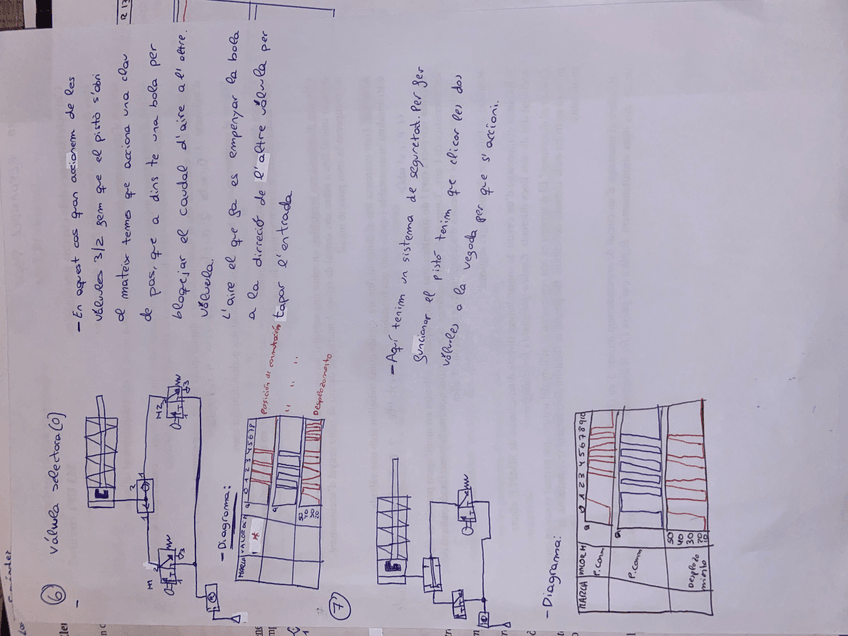 ⑥ válvula selectora (O)
- En aquest cas quan accionem de les
válvules 3/2 fem que el pistó s'obri
al mateix temps que acciona una clau
de pas, que a dins te una bola per
bloquejar el caudal d'aire a l'altre.
válvula.
L'aire el que fa es empenyar la bola
a la dirreció de l'altre válvula per
tapar l'entrada
M
M2
1
2
1
- Diagrama:
MARCA
0 1 2 3 4 5 6 7 8
Posición de conmutación
" " "
Desplazamiento
50
40
30
20
⑦
- Aquí tenim un sistema de seguretat. Per fer
funcionar el pistó tenim que clicar les dos
válvules a la vegada per que s'accioni.
- Diagrama:
MARCA
0 1 2 3 4 5 6 7 8 9 10
P. conm
P. conm
Desplaza
miento
50
40
30
20
10